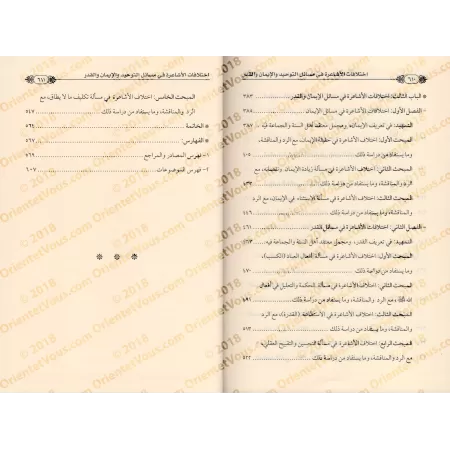 اختلافات الأشاعرة في مسائل التوحيد والإيمان والقدر ٦١٠
* الباب الثالث: اختلافات الأشاعرة في مسائل الإيمان والقدر ٣٨٣
الفصل الأول: اختلافات الأشاعرة في مسائل الإيمان ٣٨٥
التمهيد: في تعريف الإيمان، ومجمل معتقد أهل السنة والجماعة فيه ٣٨٧
المبحث الأول: اختلاف الأشاعرة في حقيقة الإيمان، مع الرد والمناقشة،
وما يستفاد من دراسة ذلك ٤٠٥
المبحث الثاني: اختلاف الأشاعرة في مسألة زيادة الإيمان ونقصانه، مع
الرد والمناقشة، وما يستفاد من دراسة ذلك
المبحث الثالث: اختلاف الأشاعرة في مسألة الاستثناء في الإيمان، مع الرد
والمناقشة، وما يستفاد من دراسة ذلك
- الفصل الثاني: اختلافات الأشاعرة في مسائل القدر ٤٦١
التمهيد: في تعريف القدر، ومجمل معتقد أهل السنة والجماعة فيه ٤٦٣
المبحث الأول: اختلاف الأشاعرة في مسألة أفعال العباد (الكسب)،
مع الرد والمناقشة، وما يستفاد من دراسة ذلك
المبحث الثاني: اختلاف الأشاعرة في مسألة الحكمة والتعليل في أفعال
الله، مع الرد والمناقشة، وما يستفاد من دراسة ذلك ٤٩١
المبحث الثالث: اختلاف الأشاعرة في الاستطاعة (القدرة)، مع الرد
والمناقشة، وما يستفاد من دراسة ذلك ٥١٣
المبحث الرابع: اختلاف الأشاعرة في مسألة التحسين والتقبيح العقلي،
مع الرد والمناقشة، وما يستفاد من دراسة ذلك ٥٢٣
اختلافات الأشاعرة في مسائل التوحيد والإيمان والقدر ٦١١
المبحث الخامس: اختلاف الأشاعرة في مسألة تكليف ما لا يطاق، مع
الرد والمناقشة، وما يستفاد من دراسة ذلك ٥٤٧
* الخاتمة ٥٦٥
* الفهارس: ٥٦٧
١- فهرس المصادر والمراجع ٥٦٩
٢- فهرس الموضوعات ٦٠٧
© 2018 OrientetVous.com